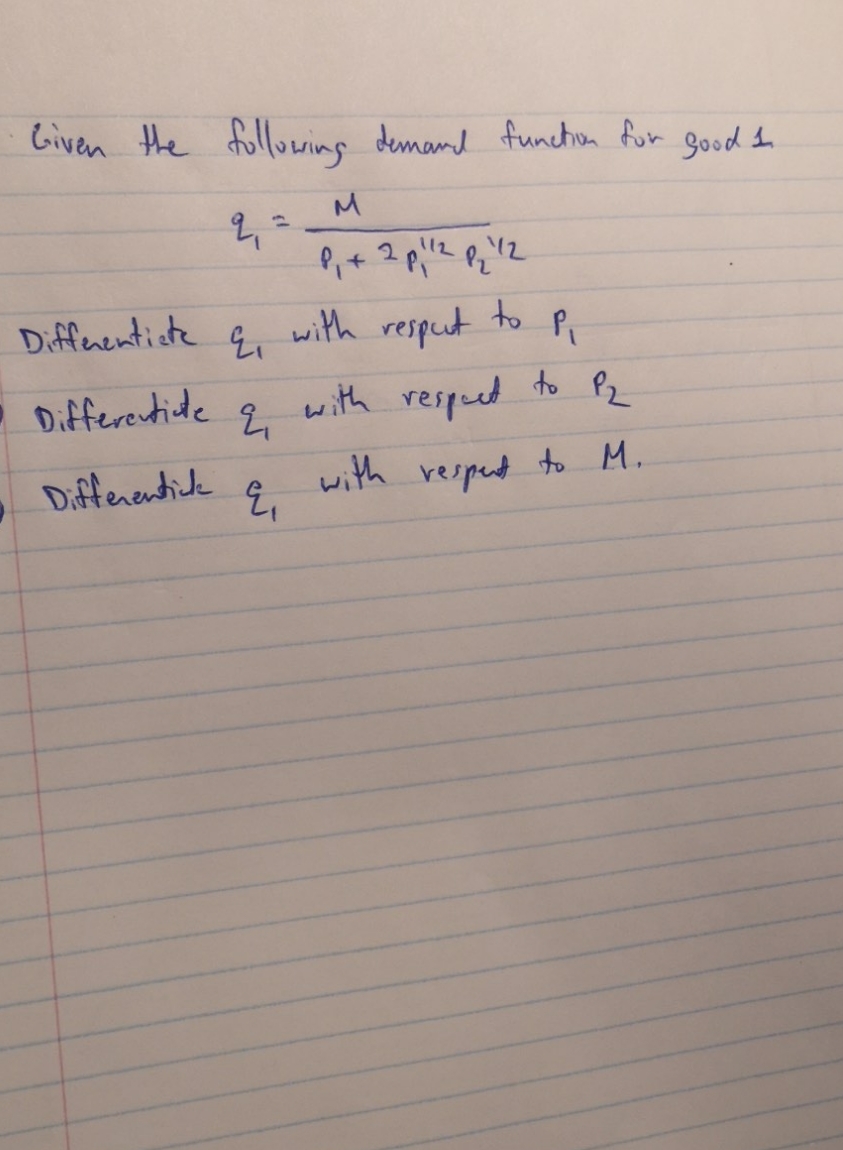 Given the following demand function for good 1
q₁ = M / (P₁ + 2 P₁^1/2 P₂^1/2)
Differentiate q₁ with respect to P₁
Differentiate q₁ with respect to P₂
Differentiate q₁ with respect to M.